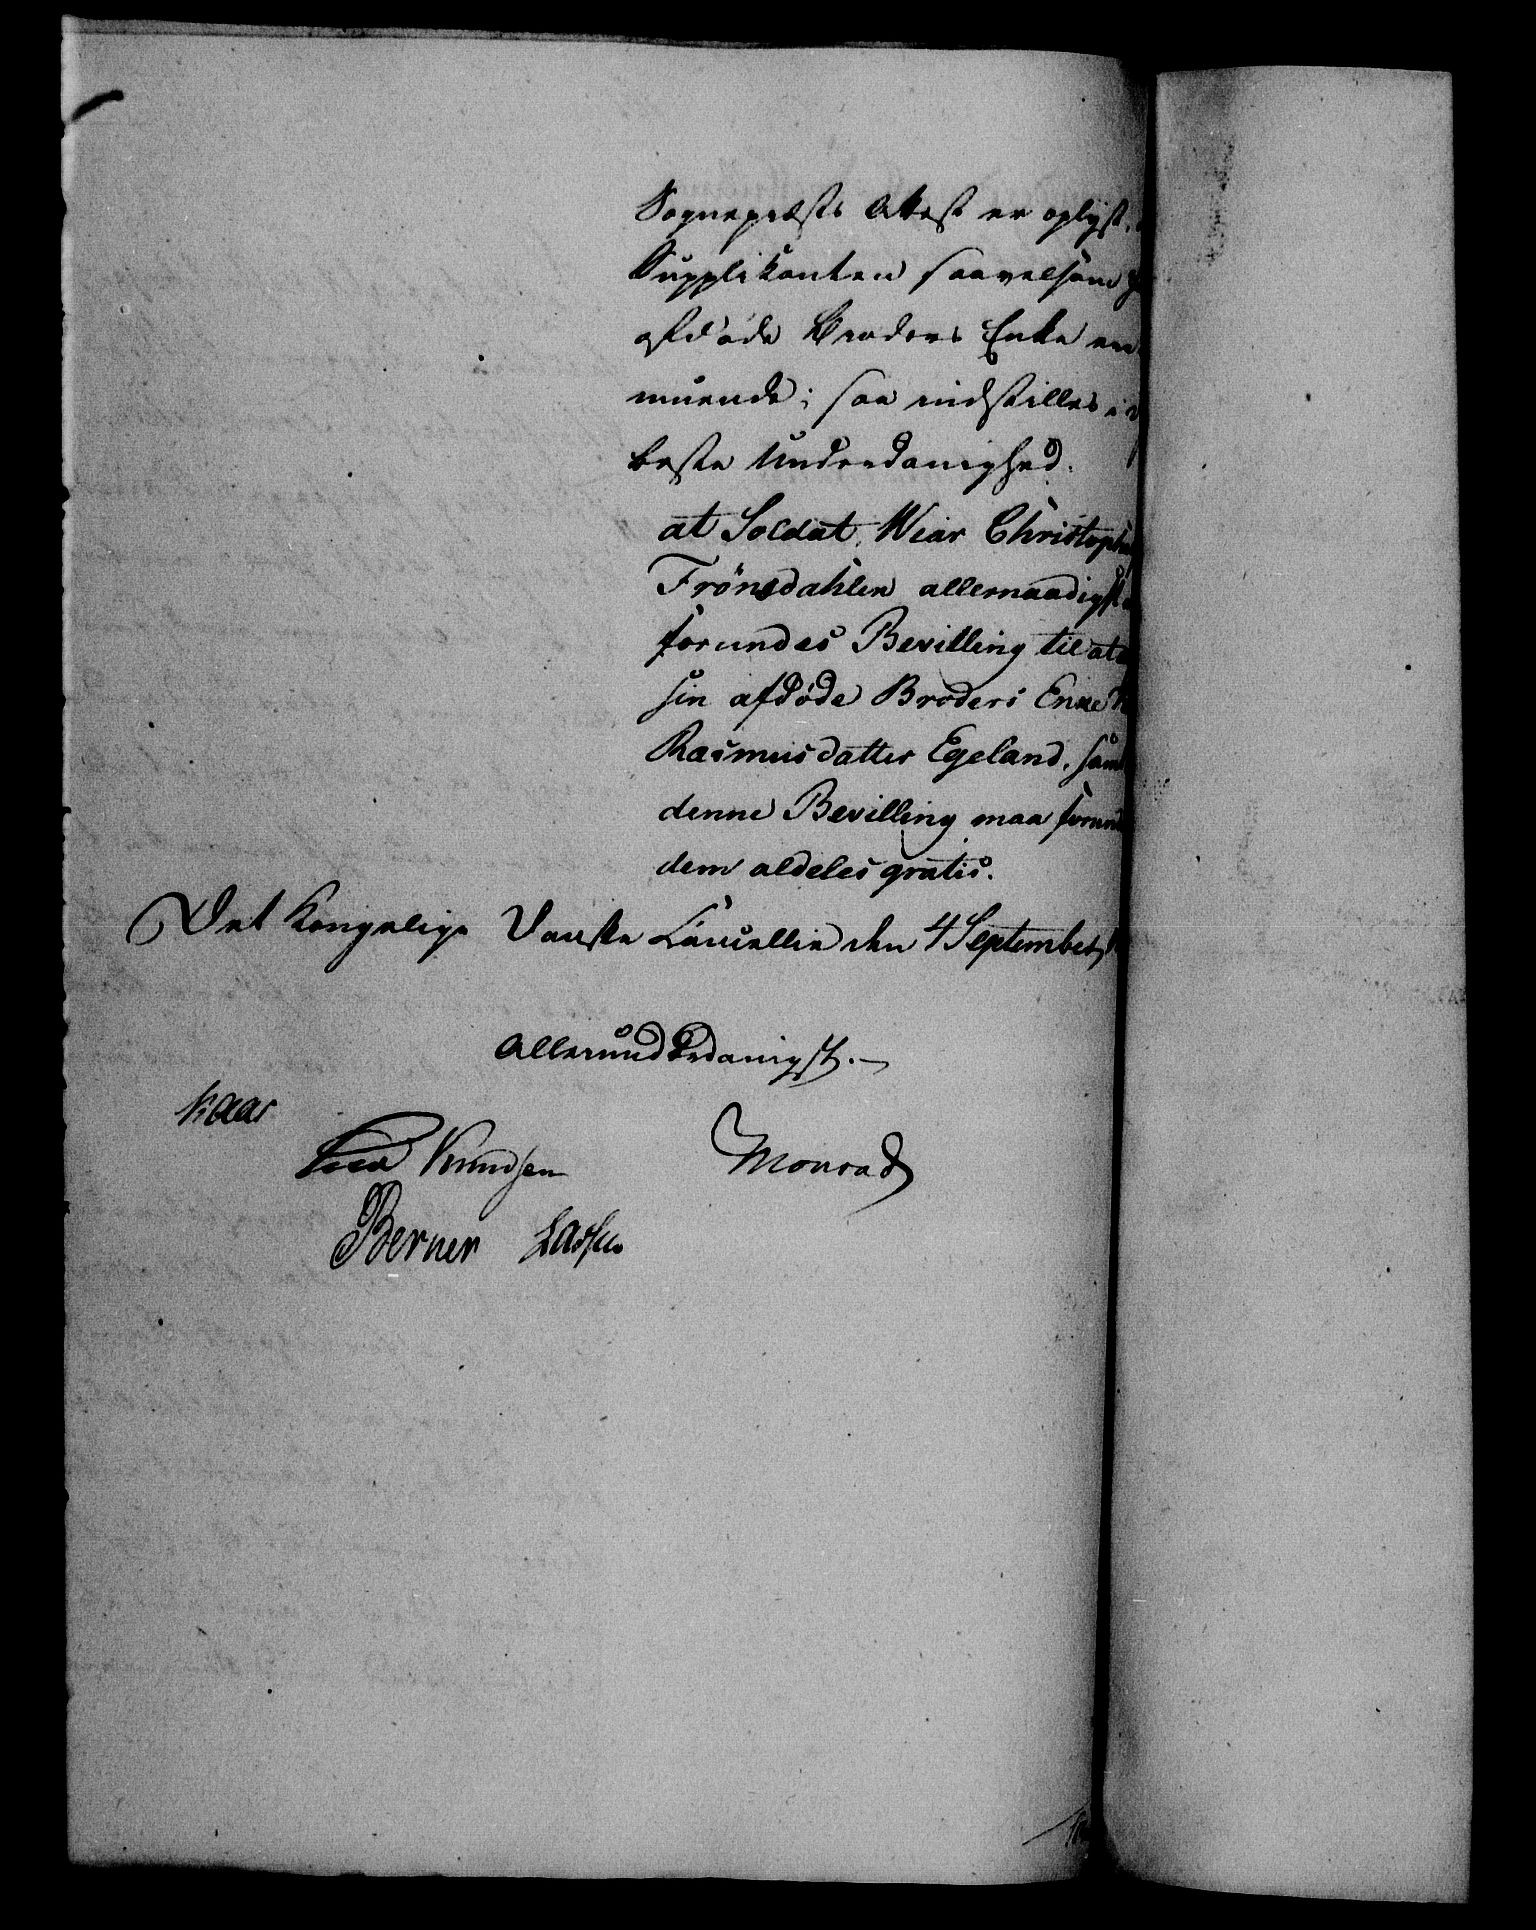 Sognepræsts Attest er oplyst,
Supplikanten saavelsom
afdøde Broders Enke ere
muende; saa indstilles i
beste Underdanighed:
at Soldat Wiar Christoph
Frönsdahlen allernaadigst
forundes Bevilling til at
sin afdøde Broders Enke
Rasmusdatter Egeland, samt
denne Bevilling maa forund
dem aldeles gratis.
Det Kongelige Danske Cancellie den 4 September
Allerunderdanigst.
Kaas
Knudsen Monrad
Berner Lassen